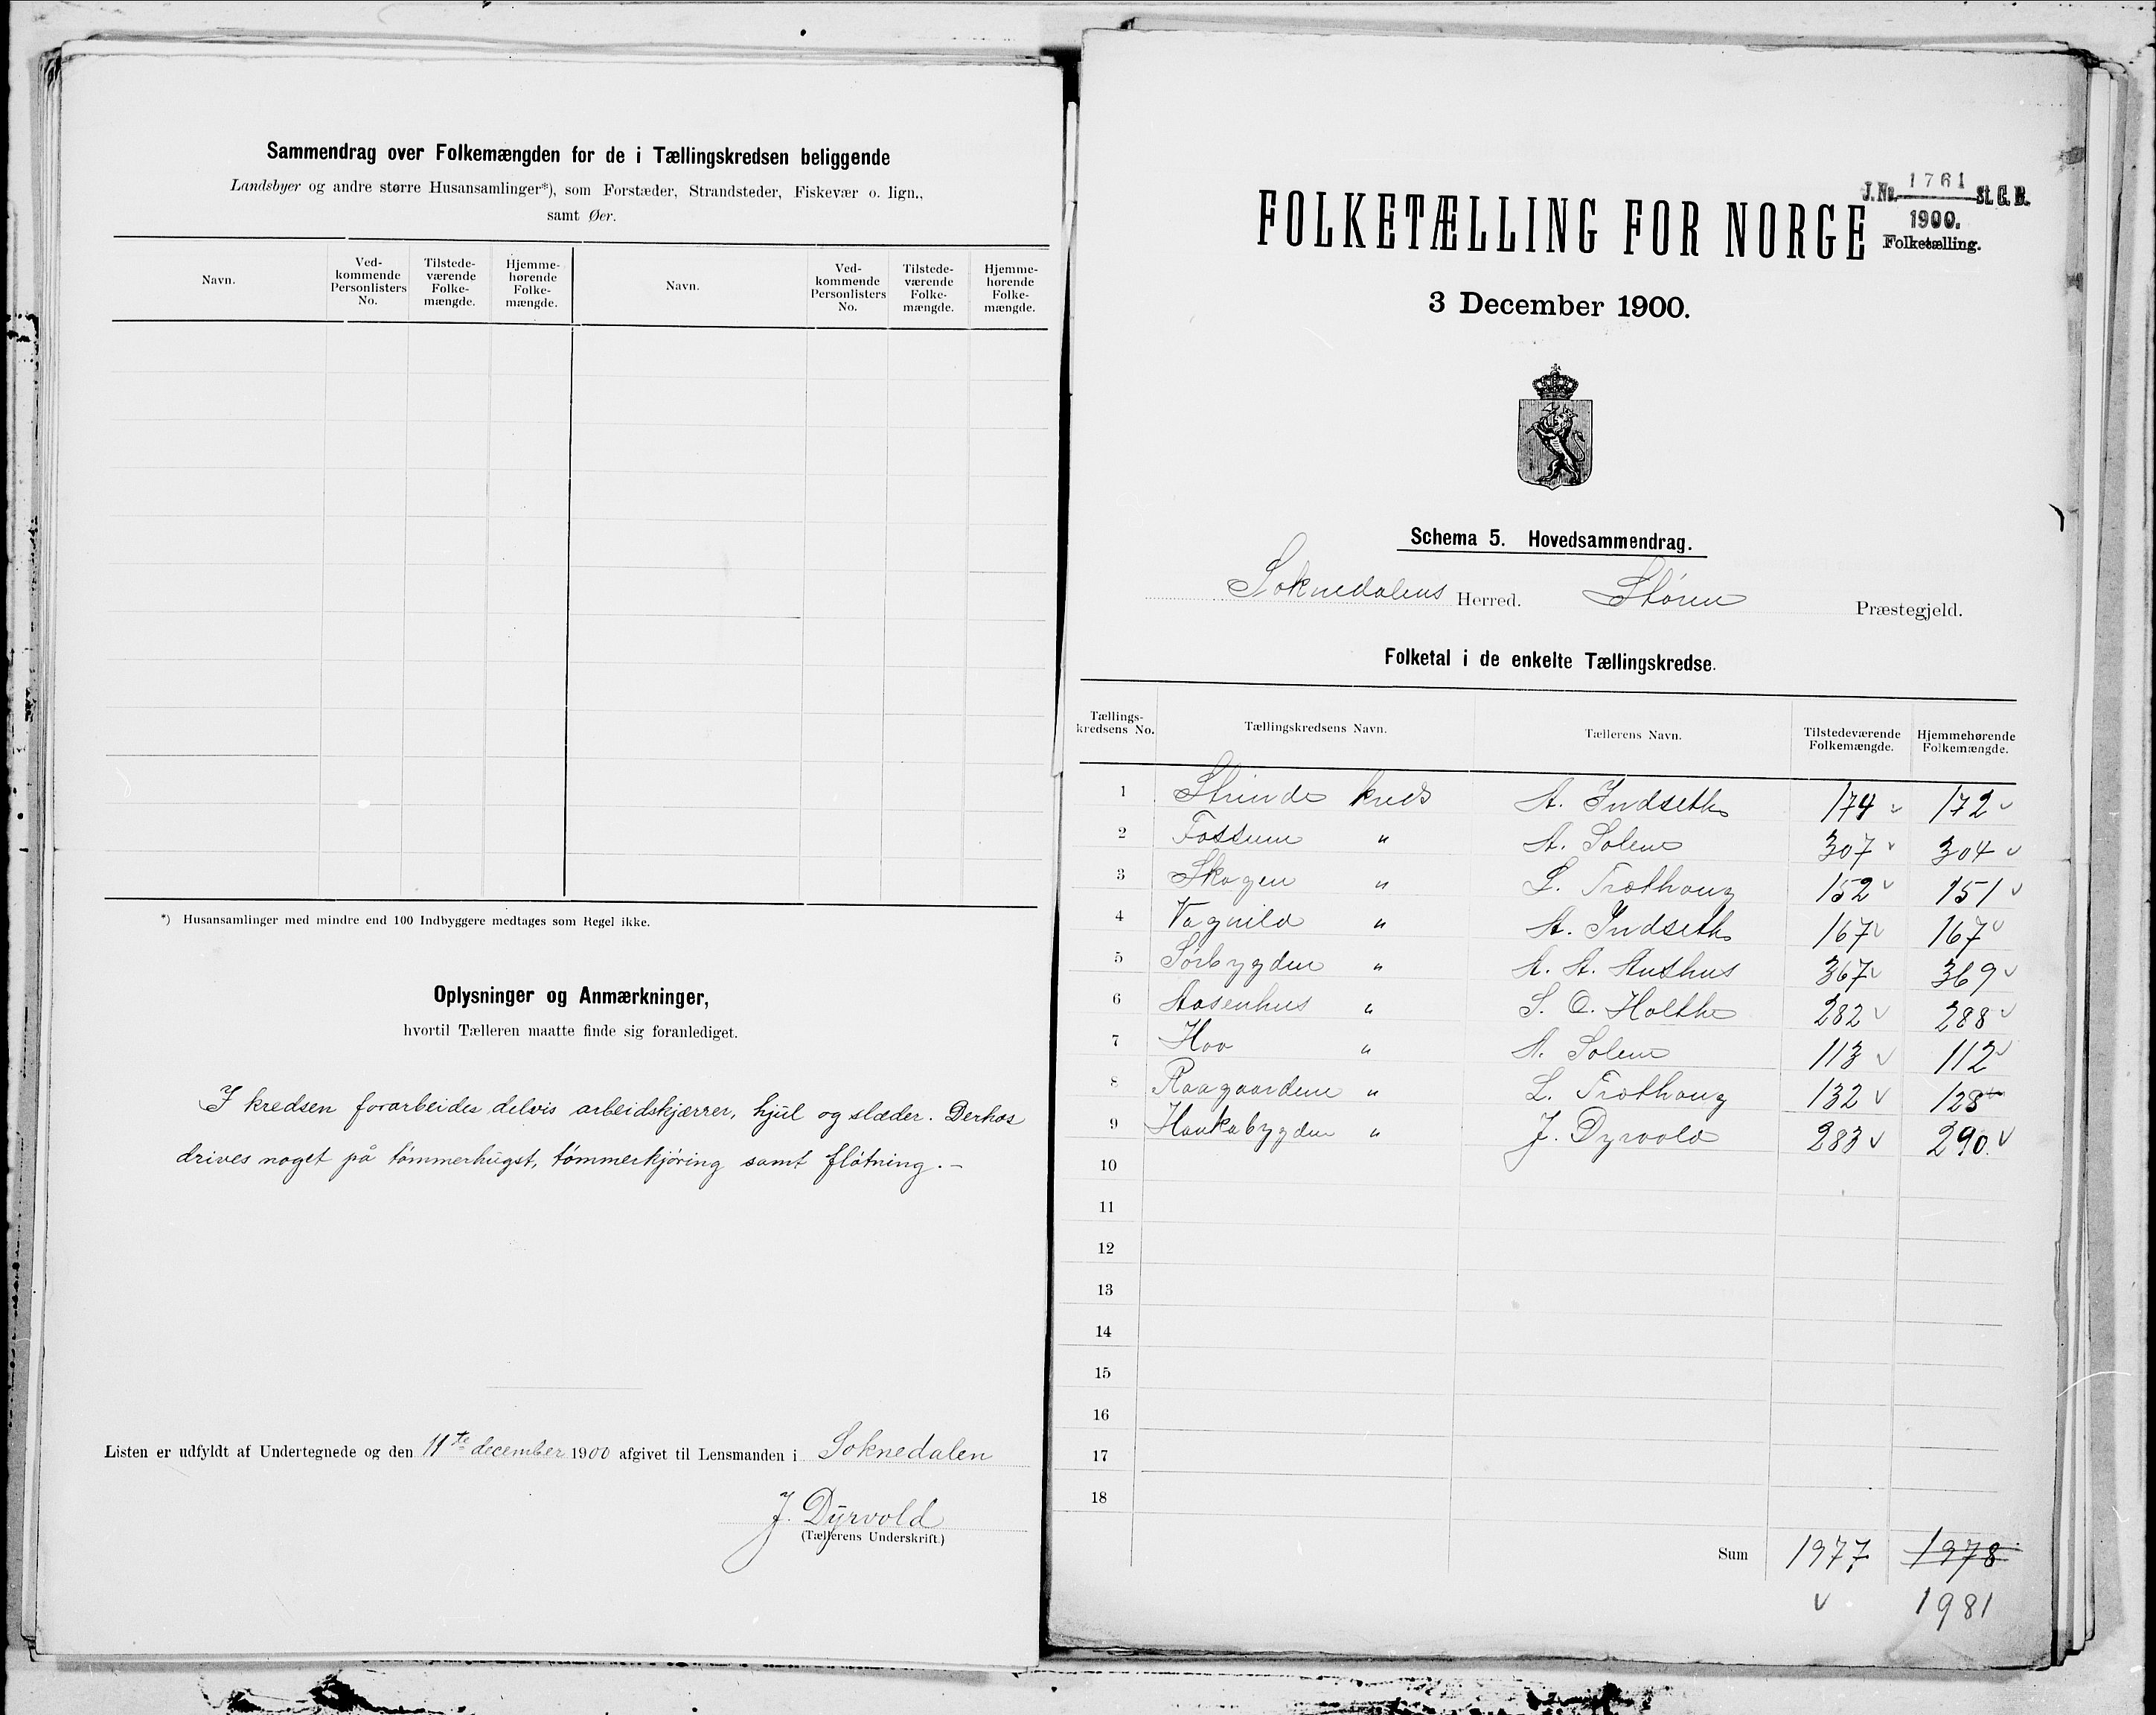 Sammendrag over Folkemængden for de i Tællingskredsen beliggende
Landsbyer og andre større Husansamlinger*), som Forstæder, Strandsteder, Fiskevær o. lign.,
samt Øer.
Navn.
Ved-
kommende
Personlisters
No.
Tilstede-
værende
Folke-
mængde.
Hjemme-
hørende
Folke-
mængde.
Navn.
Ved-
kommende
Personlisters
No.
Tilstede-
værende
Folke-
mængde.
Hjemme-
hørende
Folke-
mængde.
*) Husansamlinger med mindre end 100 Indbyggere medtages som Regel ikke.
Oplysninger og Anmærkninger,
hvortil Tælleren maatte finde sig foranlediget.
I kredsen forarbeides delvis arbeidskjærrer, hjul og slæder. Derhos
drives noget på tømmerhugst, tømmerkjøring samt fløtning. –
Listen er udfyldt af Undertegnede og den 11te december 1900 afgivet til Lensmanden i Soknedalen
J. Dyrvold
(Tællerens Underskrift.)
FOLKETÆLLING FOR NORGE
J. No. 1761 St. C. B.
1900.
Folketælling.
3 December 1900.
Schema 5. Hovedsammendrag.
Soknedalens Herred. Støren Præstegjeld.
Folketal i de enkelte Tællingskredse.
Tællings-
kredsens No.
Tællingskredsens Navn.
Tællerens Navn.
Tilstedeværende
Folkemængde.
Hjemmehørende
Folkemængde.
1 Strinde kreds A. Indseth 174 172
2 Fossum " A. Solem 307 304
3 Skogen " L. Trøthaug 152 151
4 Vagnild " A. Indseth 167 167
5 Sørbygden " A. A. Aushus 367 369
6 Aasenhus " S. O. Holthe 282 288
7 Hov " A. Solem 113 112
8 Raagaardene " L. Trøthaug 132 128
9 Haukabygden " J. Dyrvold 283 290
10
11
12
13
14
15
16
17
18
Sum 1977 1978
1981